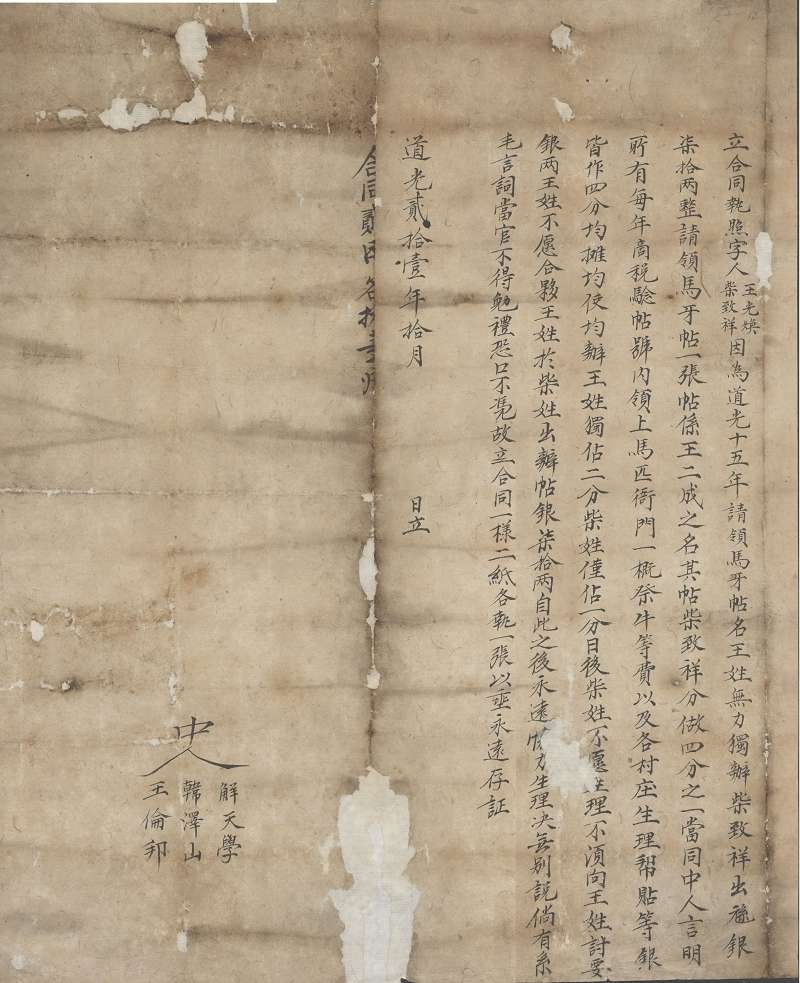 立合同執照字人王光煥柴致祥因為道光十五年請領馬牙帖名王姓無力獨辦柴致祥出銀
柒拾兩整請領馬牙帖一張帖係王二成之名其帖柴致祥分做四分之一當同中人言明
所有每年商稅驗帖號內領上馬匹衙門一概祭牛等費以及各村庄生理幫貼等銀
皆作四分均攤均使均辦王姓獨佔二分柴姓僅佔一分日後柴姓不愿生理不須向王姓討要
銀两王姓不愿合夥王姓於柴姓出辦帖銀柒拾两自此之後永遠力生理决無别說倘有系
毛言詞當官不得勉禮恐口不憑故立合同一樣二紙各執一張以垂永遠存証
道光貳拾壹年拾月 日立
合同貳各執壹
中人
解天學
韓澤山
王倫邦